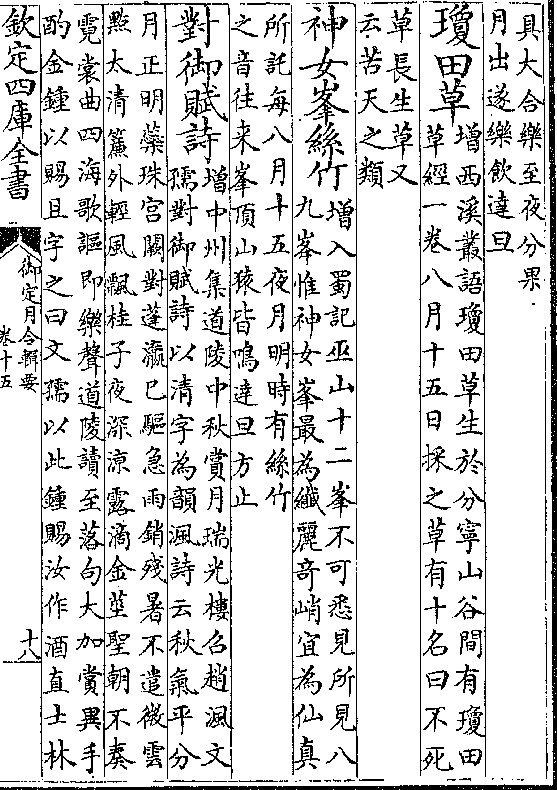 具大合樂至夜分果
月出遂樂飲達旦
瓊田草
增西溪叢語瓊田草生於分寧山谷間有瓊田
草經一卷八月十五日採之草有十名曰不死
草長生草又
云苦天之類
神女峯絲竹
增入蜀記巫山十二峯不可悉見所見八
九峯惟神女峯最為纖麗奇峭宜為仙真
所託每八月十五夜月明時有絲竹
之音往来峯頂山猿皆鳴達旦方止
對御賦詩
增中州集道陵中秋賞月瑞光樓召趙渢文
孺對御賦詩以清字為韻渢詩云秋氣平分
月正明蘂珠宮闕對蓬瀛已驅急雨銷殘暑不遣微雲
點太清簾外輕風飄桂子夜深涼露滴金莖聖朝不奏
霓裳曲四海歌謳即樂聲道陵讀至落句大加賞異手
酌金鍾以賜且字之曰文孺以此鍾賜汝作酒直士林
欽定四庫全書
御定月令輯要
卷十五
十八